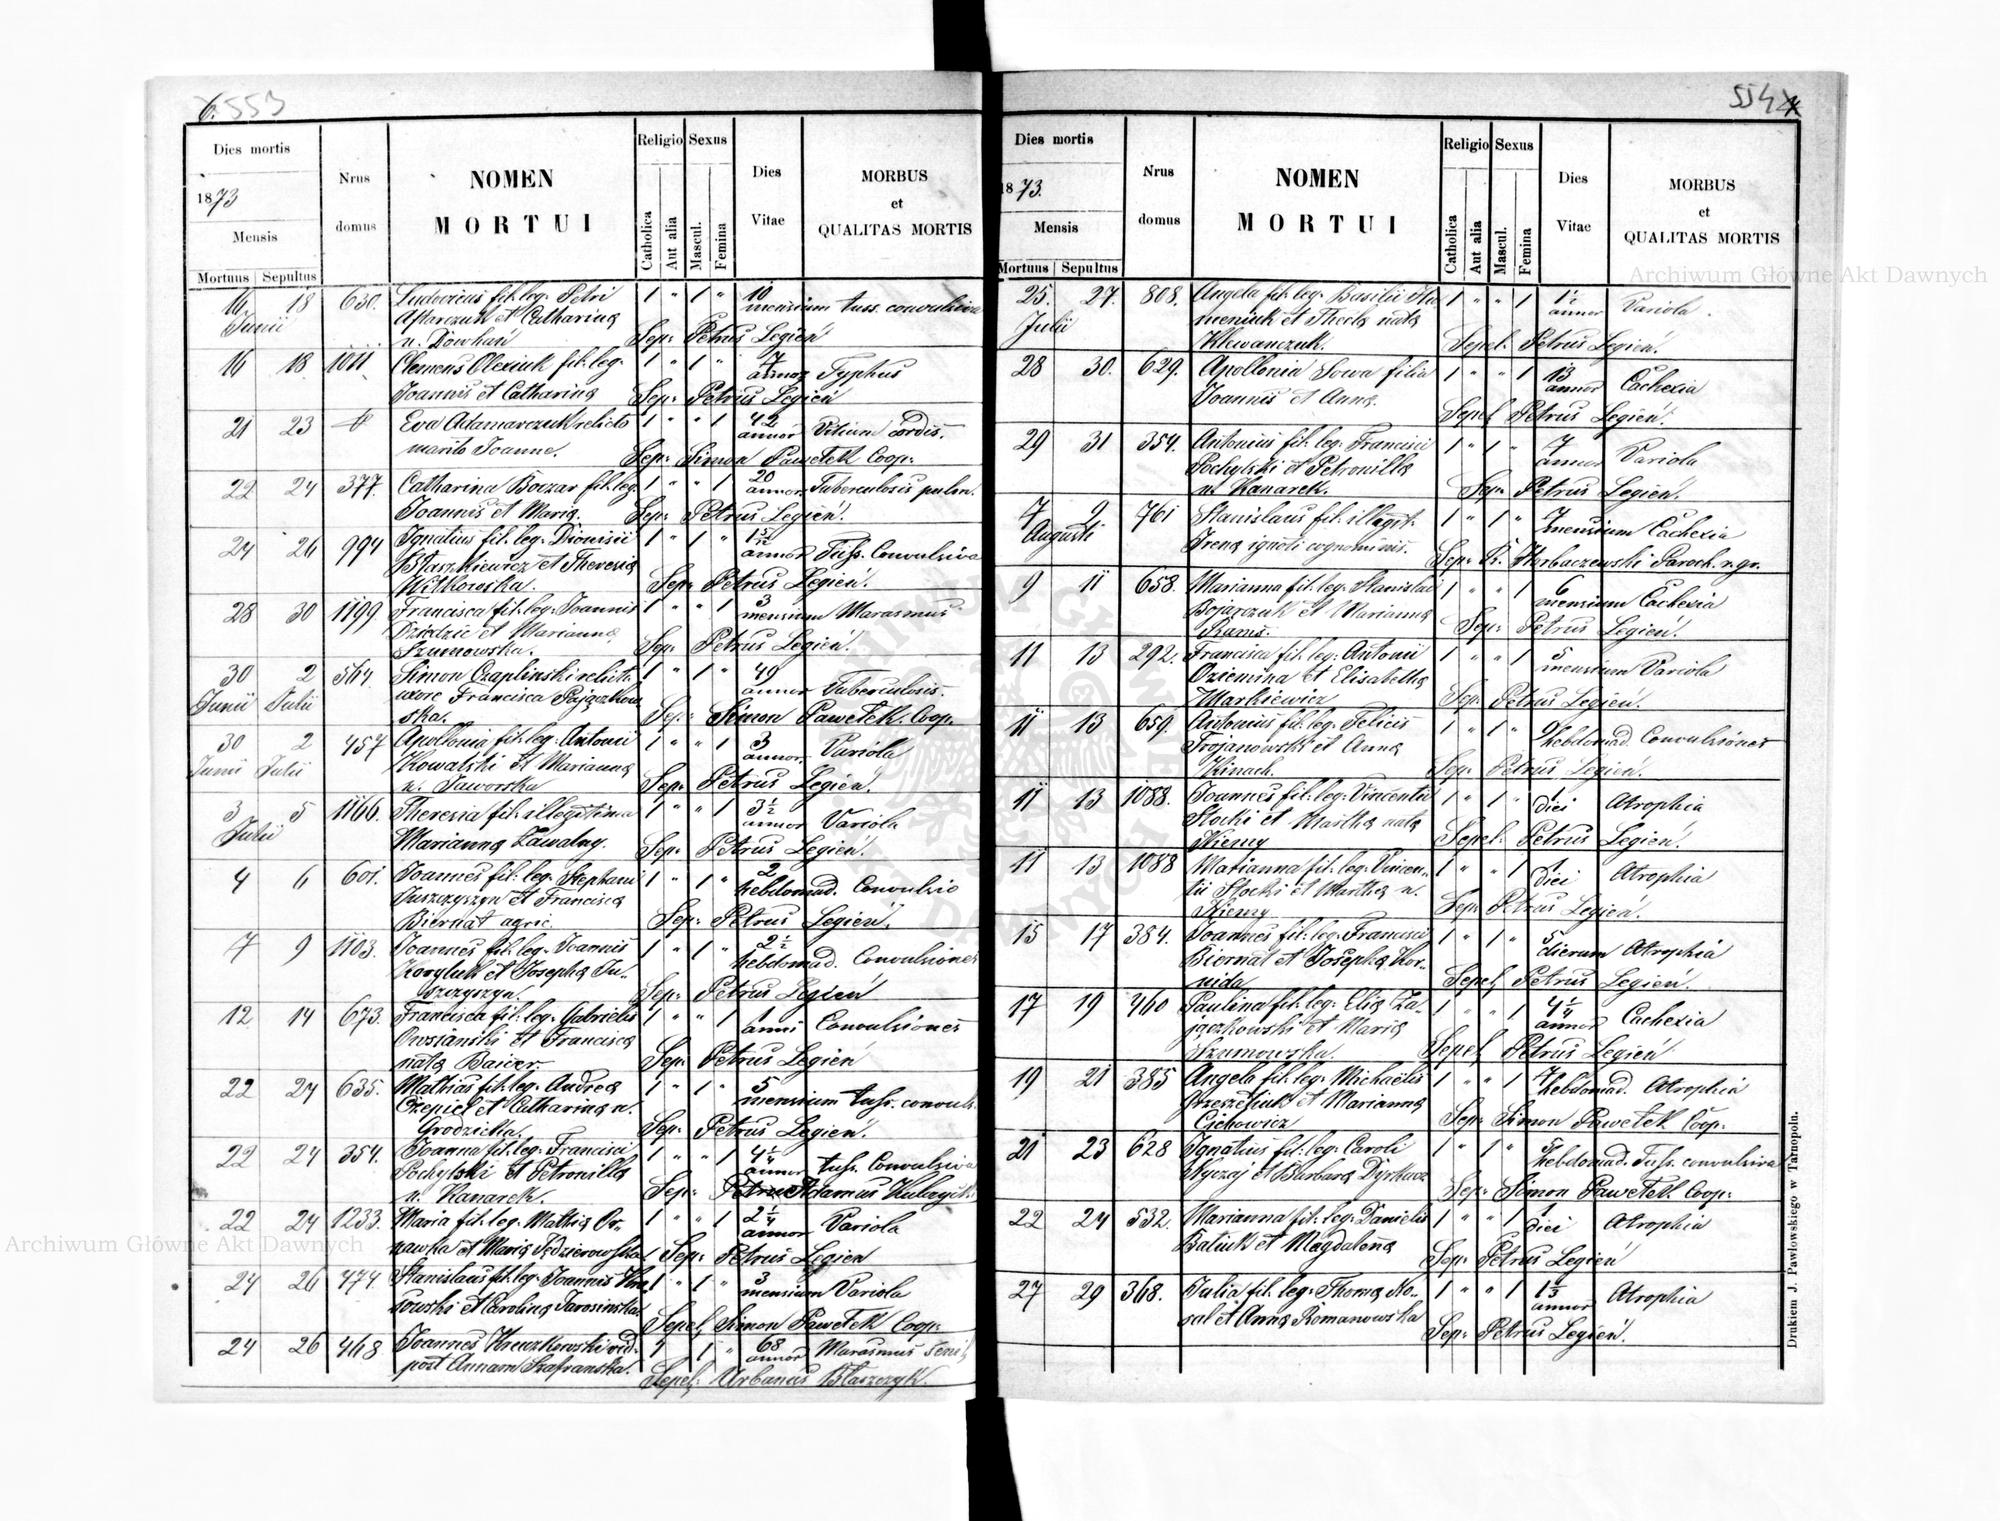 6. 553
Dies mortis
1873
Mensis
Mortuus Sepultus
Nrus
domus
NOMEN
MORTUI
Religio
Catholica
Aut alia
Sexus
Mascul.
Femina
Dies
Vitae
MORBUS
et
QUALITAS MORTIS
16 18 630. Ludovicus fil: leg: Petri 1 " 1 " 10
Junii et Catharina mensium tuss. convulsiva
n. Dowhań Sep: Petrus Legień
16 18 1011 Clemens Olexiuk fil: leg: 1 " 1 " 7
Joannis et Catharina annor Typhus
Sep: Petrus Legień
21 23 Eva Adamarczuk relicto 1 " " 1 42
marito Joanne. annor Vitium Cordis.
Sep: Simon Pawełek Coop:
22 24 377. Catharina Boczar fil: leg: 1 " " 1 20
Joannis et Maria. annor Tuberculosis pulm.
Sep: Petrus Legień.
24 26 994 Ignatius fil: leg: Dionisii 1 " 1 " 1 5/12
Staszkiewicz et Theresia annor Tuss. Convulsiva
Witkowska. Sep: Petrus Legień.
28 30 1199 Francisca fil: leg: Joannis 1 " " 1 3
Dziedzic et Marianna mensium Marasmus
Szumowska. Sep: Petrus Legień.
30 2 564. Simon Czaplinski relict. 1 " 1 " 49
Junii Julii uxore Francisca annor Tuberculosis.
ska. Sep: Simon Pawełek. Coop.
30 2 457 Apollonia fil: leg: Antonii 1 " " 1 3
Junii Julii Kowalski et Marianna annor. Variola
n. Jaworska Sep: Petrus Legień.
3 5 1166. Theresia fil: illegitima 1 " " 1 3 1/2
Julii Marianna Zawalny. annor Variola
Sep: Petrus Legień.
4 6 601. Joannes fil: leg: Stephani 1 " 1 " 2
Juszczyszyn et Francisca hebdomad. Convulsio
Biernat agric. Sep: Petrus Legień.
7 9 1103. Joannes fil: leg: Joannis 1 " 1 " 2 1/2
et Josepha Ju- hebdomad. Convulsiones
szczyszyn. Sep: Petrus Legień
12 14 673. Francisca fil: leg: Gabrielis 1 " " 1 1
Owsianski et Francisca anni Convulsiones
nata Baucer. Sep: Petrus Legień
22 24 635. Mathias fil: leg: Andrea 1 " 1 " 5
Czepiel et Catharina n. mensium tuss. convuls.
Grodzicka. Sep: Petrus Legień.
22 24 354. Joanna fil: leg: Francisci 1 " " 1 4 1/4
Pochylski et Petronilla annor tuss. Convulsiva
n. Kanarek. Sep: Petrus Adamus
22 24 1233. Maria fil: leg: Mathia Or- 1 " " 1 2 1/4
nawka et Maria annor Variola
Sep: Petrus Legien
24 26 474. Stanislaus fil: leg: Joannis 1 " 1 " 3
sowski et Carolina Jarosinska mensium Variola
Sepel: Simon Pawełek Coop:
24 26 468 Joannes vid. 1 1 " 68
post Annam Szafranska. annor Marasmus senil
Sepel: Urbanus Błaszczyk.
554
Dies mortis
1873.
Mensis
Mortuus Sepultus
Nrus
domus
NOMEN
MORTUI
Religio
Catholica
Aut alia
Sexus
Mascul.
Femina
Dies
Vitae
MORBUS
et
QUALITAS MORTIS
25. 27. 808. Angela fil: leg: Basilii Hu- 1 " " 1 1 1/2
Julii meniuk et Thecla nata annor Variola.
Klewanczuk. Sepel: Petrus Legień.
28 30. 629. Apollonia Sowa filia 1 " " 1 13
Joannis et Anna. annor Cachexia
Sepel. Petrus Legień.
29 31 354. Antonius fil: leg: Francisci 1 " 1 " 7
Pochylski et Petronilla annor Variola
n. Kanarek. Sep: Petrus Legień.
7 9 761 Stanislaus fil: illegit. 1 " 1 " 7
Augusti Irena ignoti cognominis. mensium Cachexia
Sep: R. Horbaczewski Paroch. r. gr.
9 11 658. Marianna fil: leg: Stanislai 1 " " 1 6
Bojarczuk et Marianna mensium Cachexia
Rams. Sep: Petrus Legień.
11 13 292. Francisca fil: leg: Antonii 1 " " 1 5
Dziemina et Elisabetha mensium Variola
Markiewicz Sep: Petrus Legień.
11 13 659. Antonius fil: leg: Felicis 1 " 1 "
Trojanowski et Anna hebdomad. Convulsiones
Kinach. Sep: Petrus Legień.
11 13 1088. Joannes fil: leg: Vincentii 1 " 1 " 1
Słocki et Martha nata diei Atrophia
Kiemy Sepel: Petrus Legień.
11 13 1088 Marianna fil: leg: Vincen- 1 " " 1 1
tii Słocki et Martha n. diei Atrophia
Kiemy Sep: Petrus Legień.
15 17 384. Joannes fil: leg: Francisci 1 " 1 " 5
Biernat et Josepha Kor- dierum Atrophia
nida Sepel. Petrus Legień.
17 19 460 Paulina fil: leg: Elia Za- 1 " " 1 4 1/4
jączkowski et Maria annor Cachexia
Szumowska. Sepel. Petrus Legień
19 21 385 Angela fil: leg: Michaëlis 1 " " 1 7
Grzesześiuk et Marianna hebdomad. Atrophia
Cichowicz Sep: Simon Pawełek Coop:
21 23 628 Ignatius fil: leg: Caroli 1 " 1 " 5
et Barbara Dyrkacz hebdomad. Tuss. convulsiva
Sep: Simon Pawełek Coop:
22 24 532. Marianna fil: leg: Danielis 1 " " 1 1
Baliuk et Magdalena diei Atrophia
Sep: Petrus Legień
27 29 368. Julia fil: leg: Thoma Ko- 1 " " 1 1 1/3
sal et Anna Romanowska annor Atrophia
Sep: Petrus Legień.
Drukiem J. Pawłowskiego w Tarnopolu.
Archiwum Główne Akt Dawnych
Archiwum Główne Akt Dawnych
ARCHIWUM GŁÓWNE AKT DAWNYCH